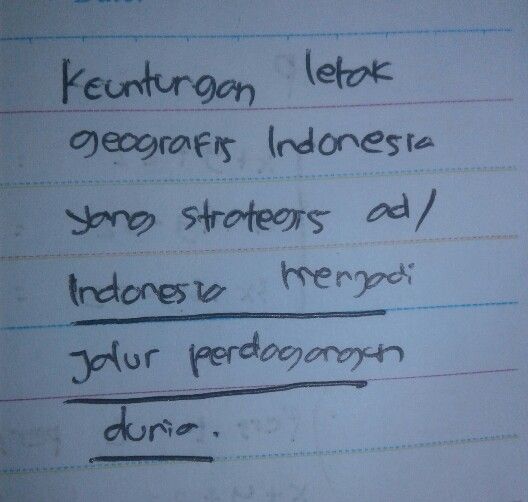 Keuntungan letak
geografis Indonesia
yang strategis ad/
Indonesia menjadi
Jalur perdagangan
dunia.